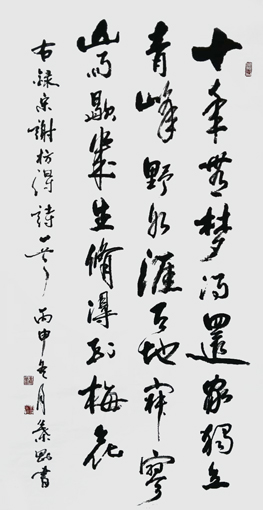 十年无梦得还家独立
青峰野水涯天地寂寥
山雨歇几生修得到梅花
右录宋谢枋得诗一首丙申年月 书